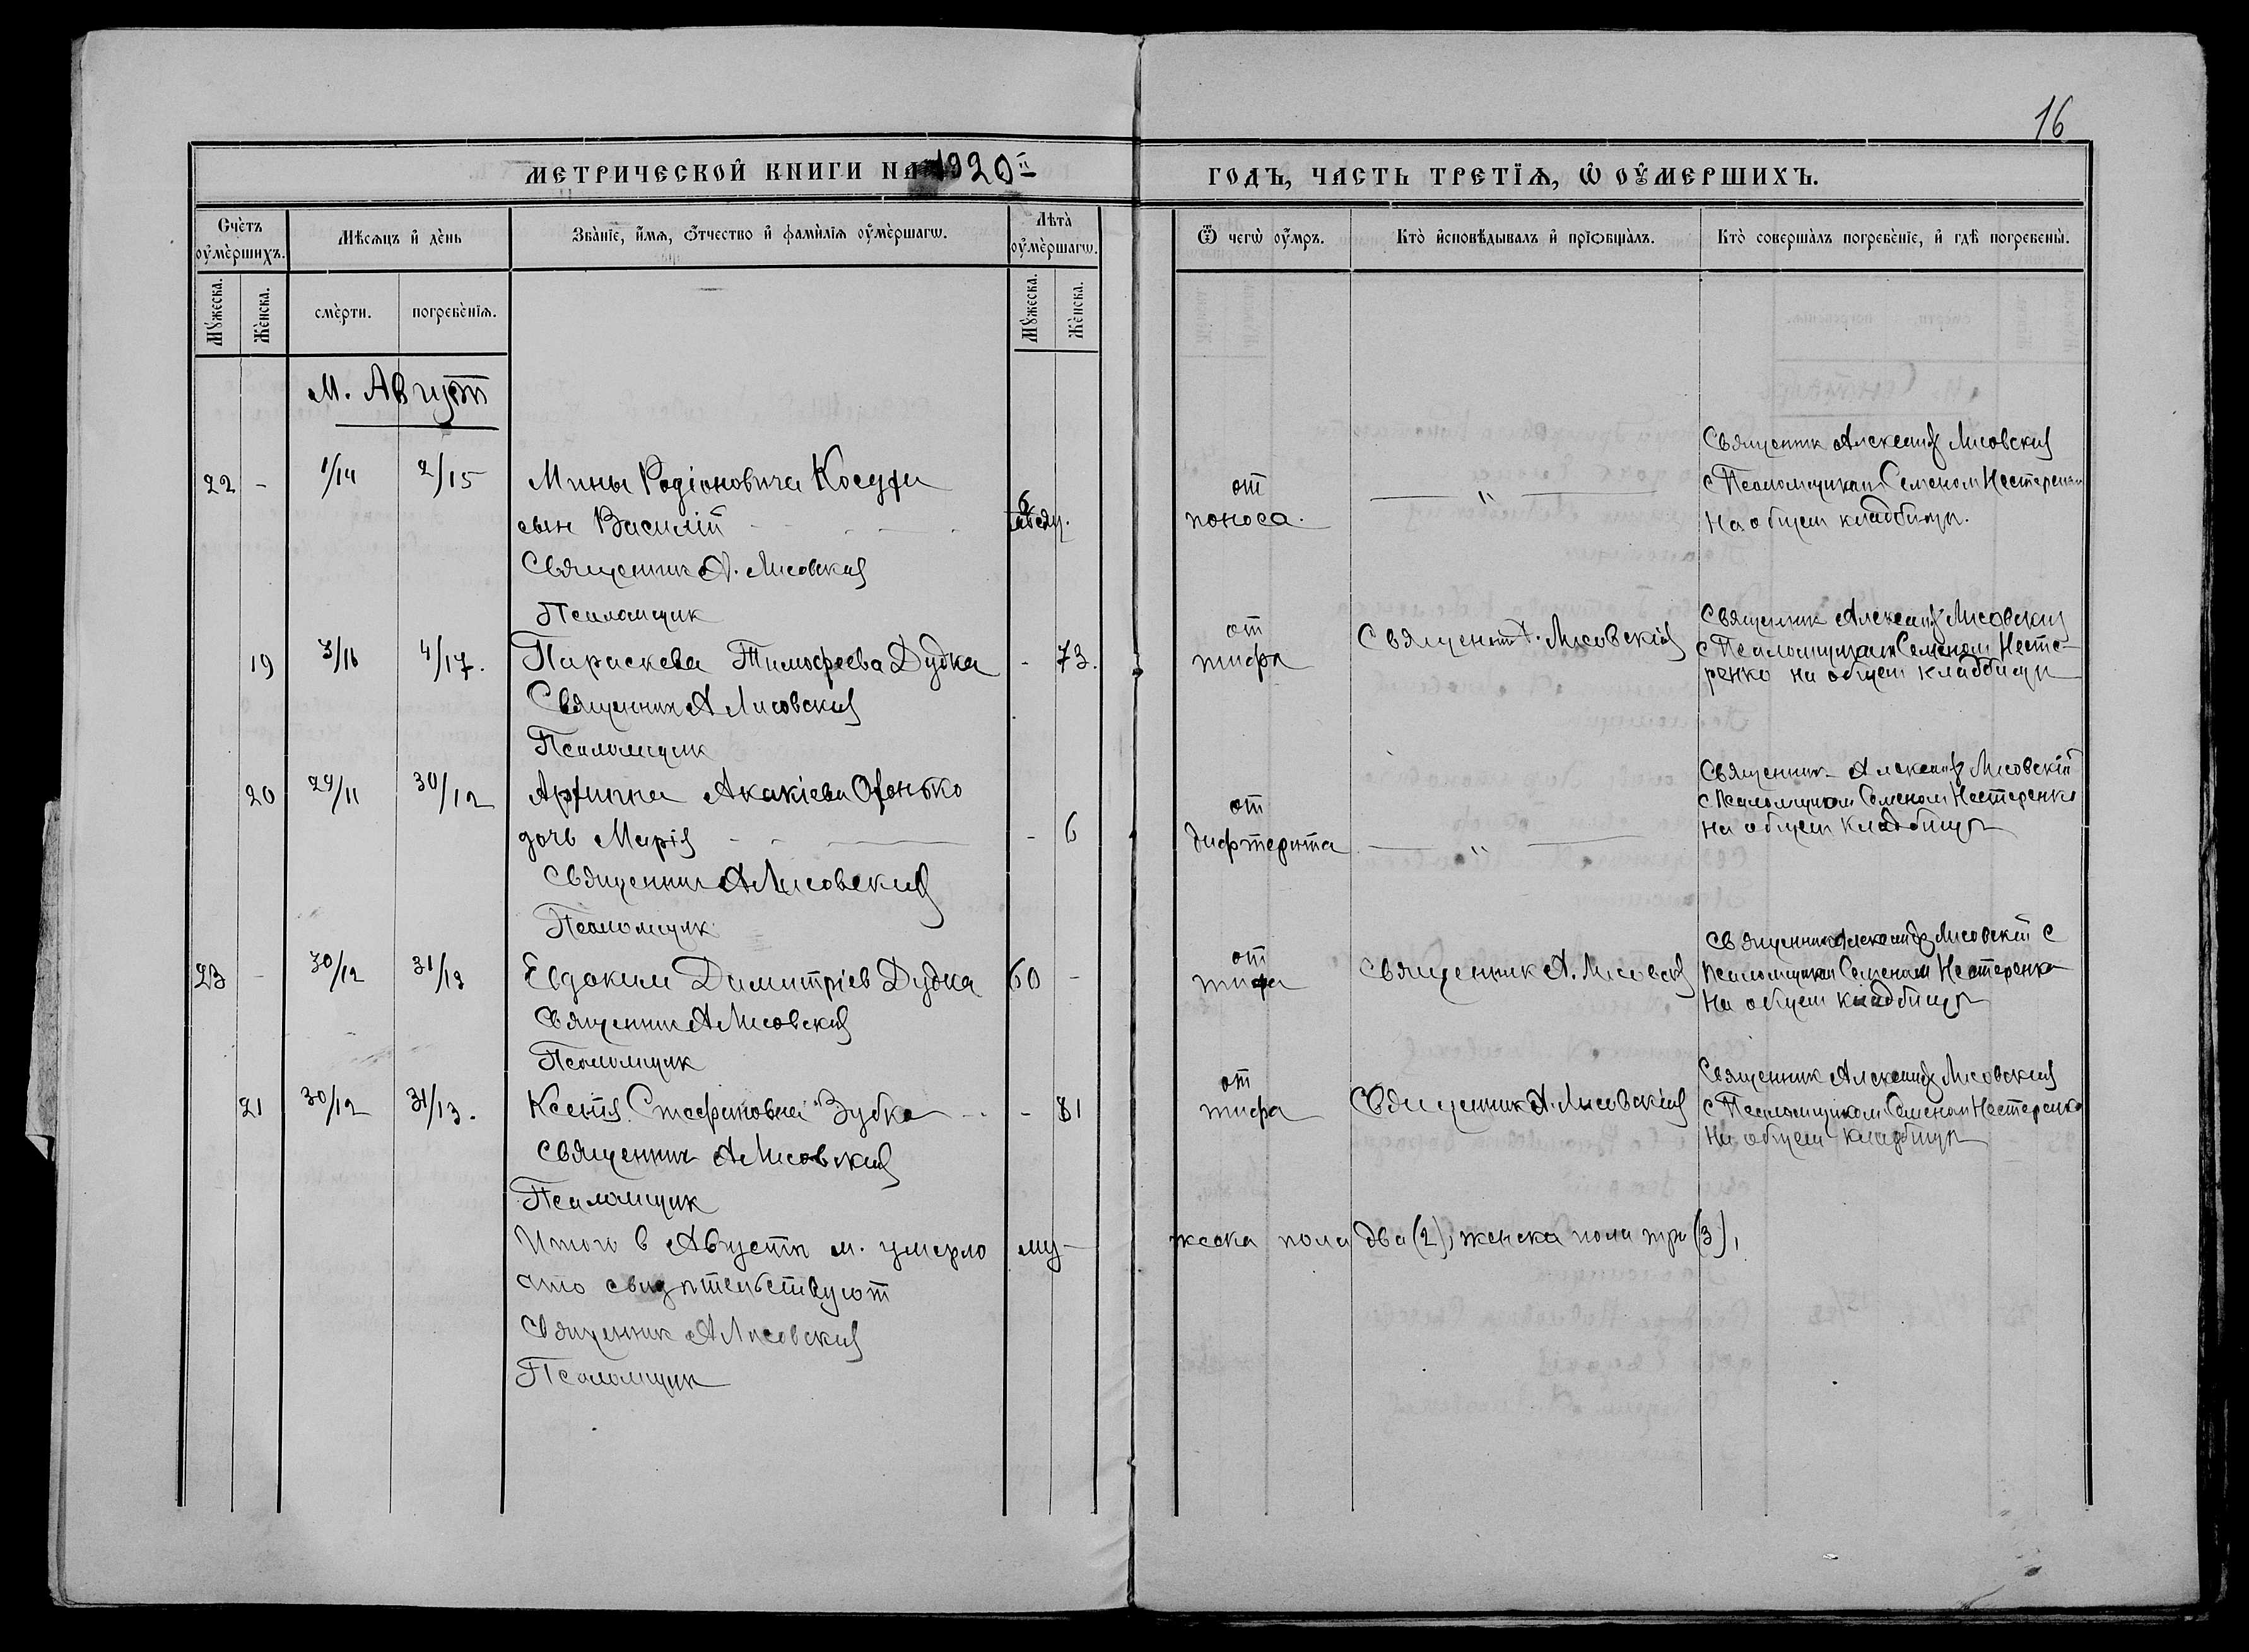 16
МЕТРИЧЕСКОЙ КНИГИ НА 1920й ГОДЪ, ЧАСТЬ ТРЕТІЯ, Ѿ ОУМЕРШИХЪ.
Счетъ оумершихъ.
Мѣсяцъ и день
Званіе, имя, отчество и фамилія оумершагѡ.
Лѣта оумершагѡ.
Ѿ чегѡ оумръ.
Кто исповѣдывалъ и пріобщалъ.
Кто совершалъ погребеніе, и гдѣ погребены.
Мꙋжеска.
Женска.
смерти.
погребенія.
Мꙋжеска.
Женска.
М. Август
22 - 1/14 2/15 Мины Родіоновича
сын Василій - 6
Священник А. Лисовскій
Псаломщик
от
поноса.
— " —
Священник Александр Лисовскій
с Псаломщиком Семеном Нестеренко
на общем кладбищѣ.
19 3/16 4/17. Параскева Тимофеева Дудка - 73.
Священник А Лисовскій
Псаломщик
от
тифа
Священник А. Лисовскій
Священник Александр Лисовскій
с Псаломщиком Семеном Несте-
ренко на общем кладбищѣ
20 29/11 30/12 Акакіева
дочь Марія - 6
Священник А Лисовскій
Псаломщик
от
дифтерита
— " —
Священник Александр Лисовскій
с Псаломщиком Семеном Нестеренко
на общем кладбищѣ
23 - 30/12 31/13 Евдоким Димитріев Дудка 60 -
Священник А Лисовскій
Псаломщик
от
тифа
Священник А. Лисовскій
Священник Александр Лисовскій с
Псаломщиком Семеном Нестеренко
на общем кладбищѣ
21 30/12 31/13. Ксенія Стефановна Зубко - 81
Священник А Лисовскій
Псаломщик
от
тифа
Священник А. Лисовскій
Священник Александр Лисовскій
с Псаломщиком Семеном Нестеренко
на общем кладбищѣ
Итого в Августѣ м. умерло му-жеска пола два (2), женска пола три (3),
что свидѣтельствуют
Священник А Лисовскій
Псаломщик